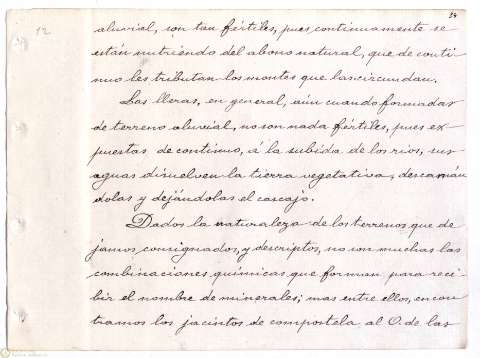 34
12
aluvial, son tan fértiles, pues continuamente se
están nutriendo del abono natural, que de conti
nuo les tributan los montes que las circundan.
Las lleras, en general, aún cuando formadas
de terreno aluvial, no son nada fértiles, pues ex-
puestas de continuo, á la subida de los rios, sus
aguas disuelven la tierra vegetativa, descarnán
dolas y dejándolas el cascajo.
Dados la naturaleza de los terrenos que de
jamos consignados, y descriptos, no son muchas las
combinaciones químicas que forman para reci-
bir el nombre de minerales; mas entre ellos, encon
tramos los jacintos de compostela, al O. de las